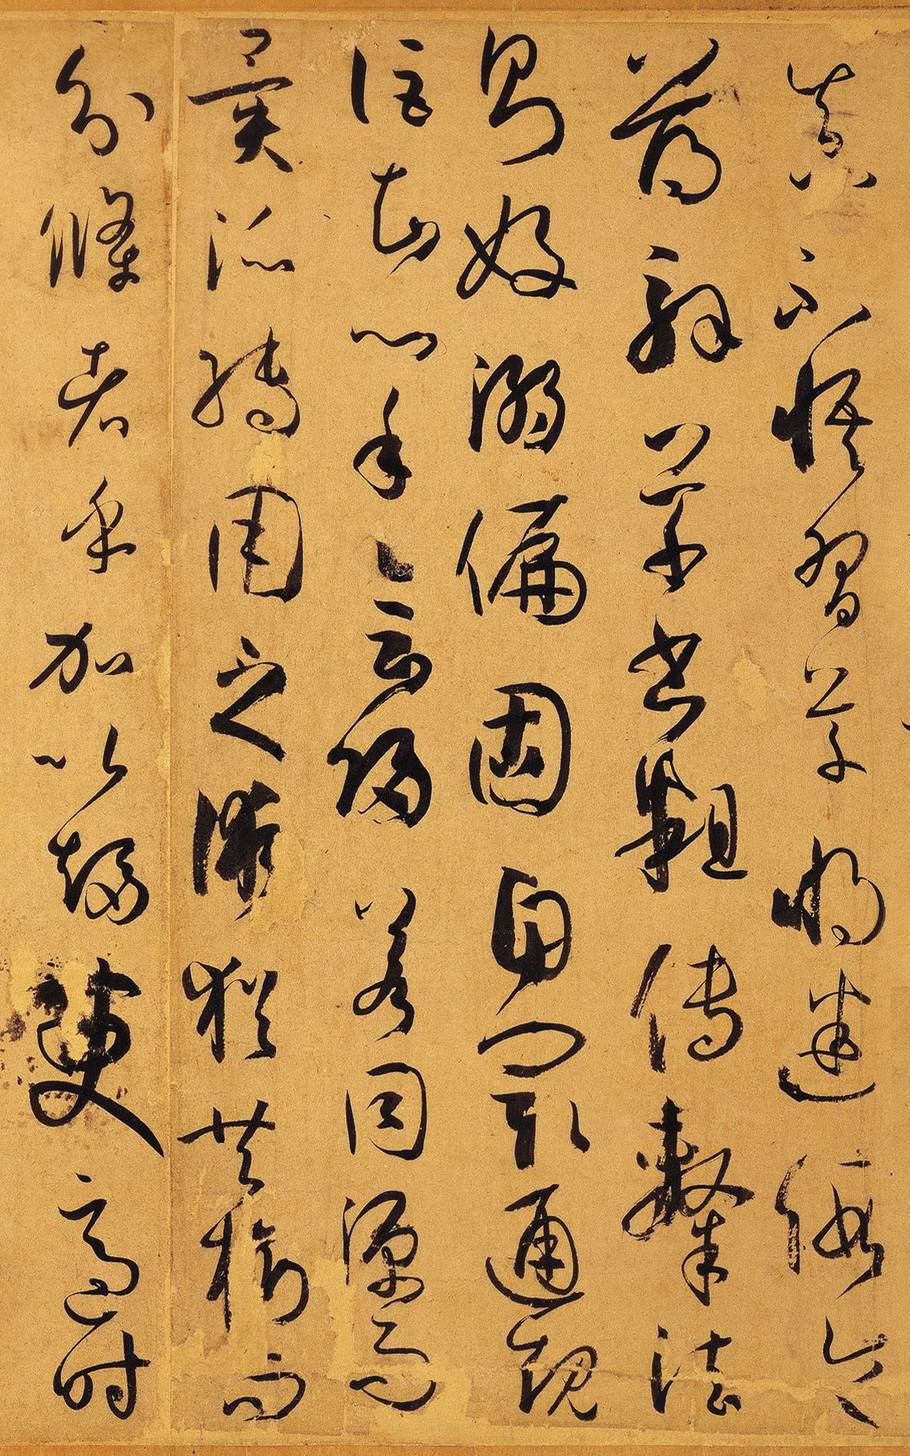 真不悟習草將迷假令
薄解草書粗傳隸法
則好溺偏固自閡通規
詎知心手會歸若同源而
異派轉用之術猶共樹而
分條者乎加以趨變適時